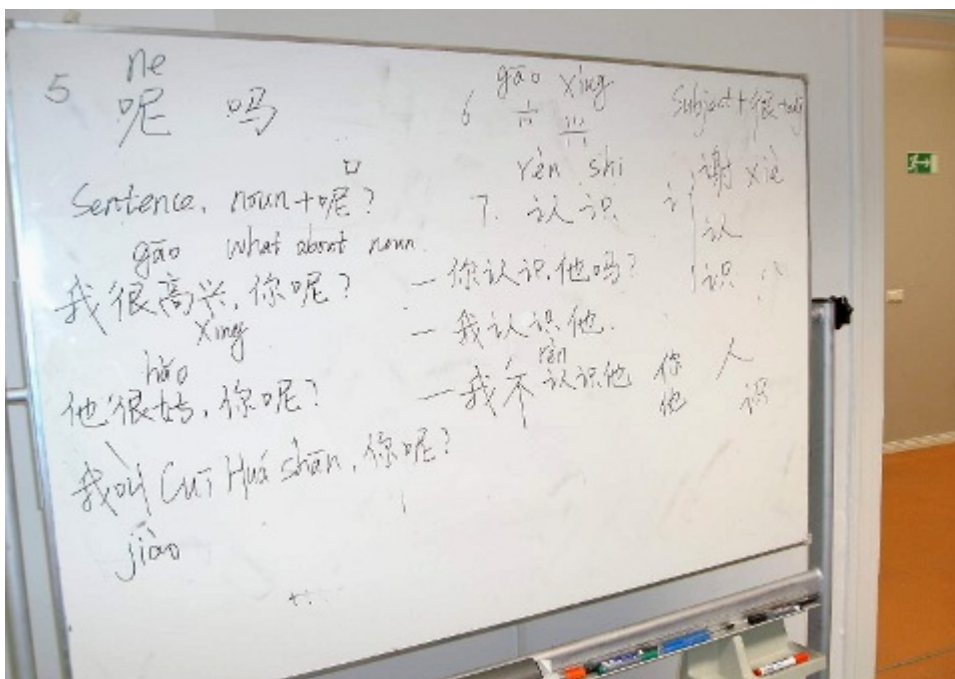 5
ne
呢 吗
口
Sentence, noun+呢?
gāo what about noun
我很高兴,你呢?
xìng
hǎo
他很好,你呢?
我叫 Cuī Huá shān,你呢?
jiào
6 gāo xìng
rèn shi
7. 认识
一你认识他吗?
一我认识他.
rèn
一我不认识他
Subject+很+adj
讠 谢 xiè
认
识
你 人
他 识